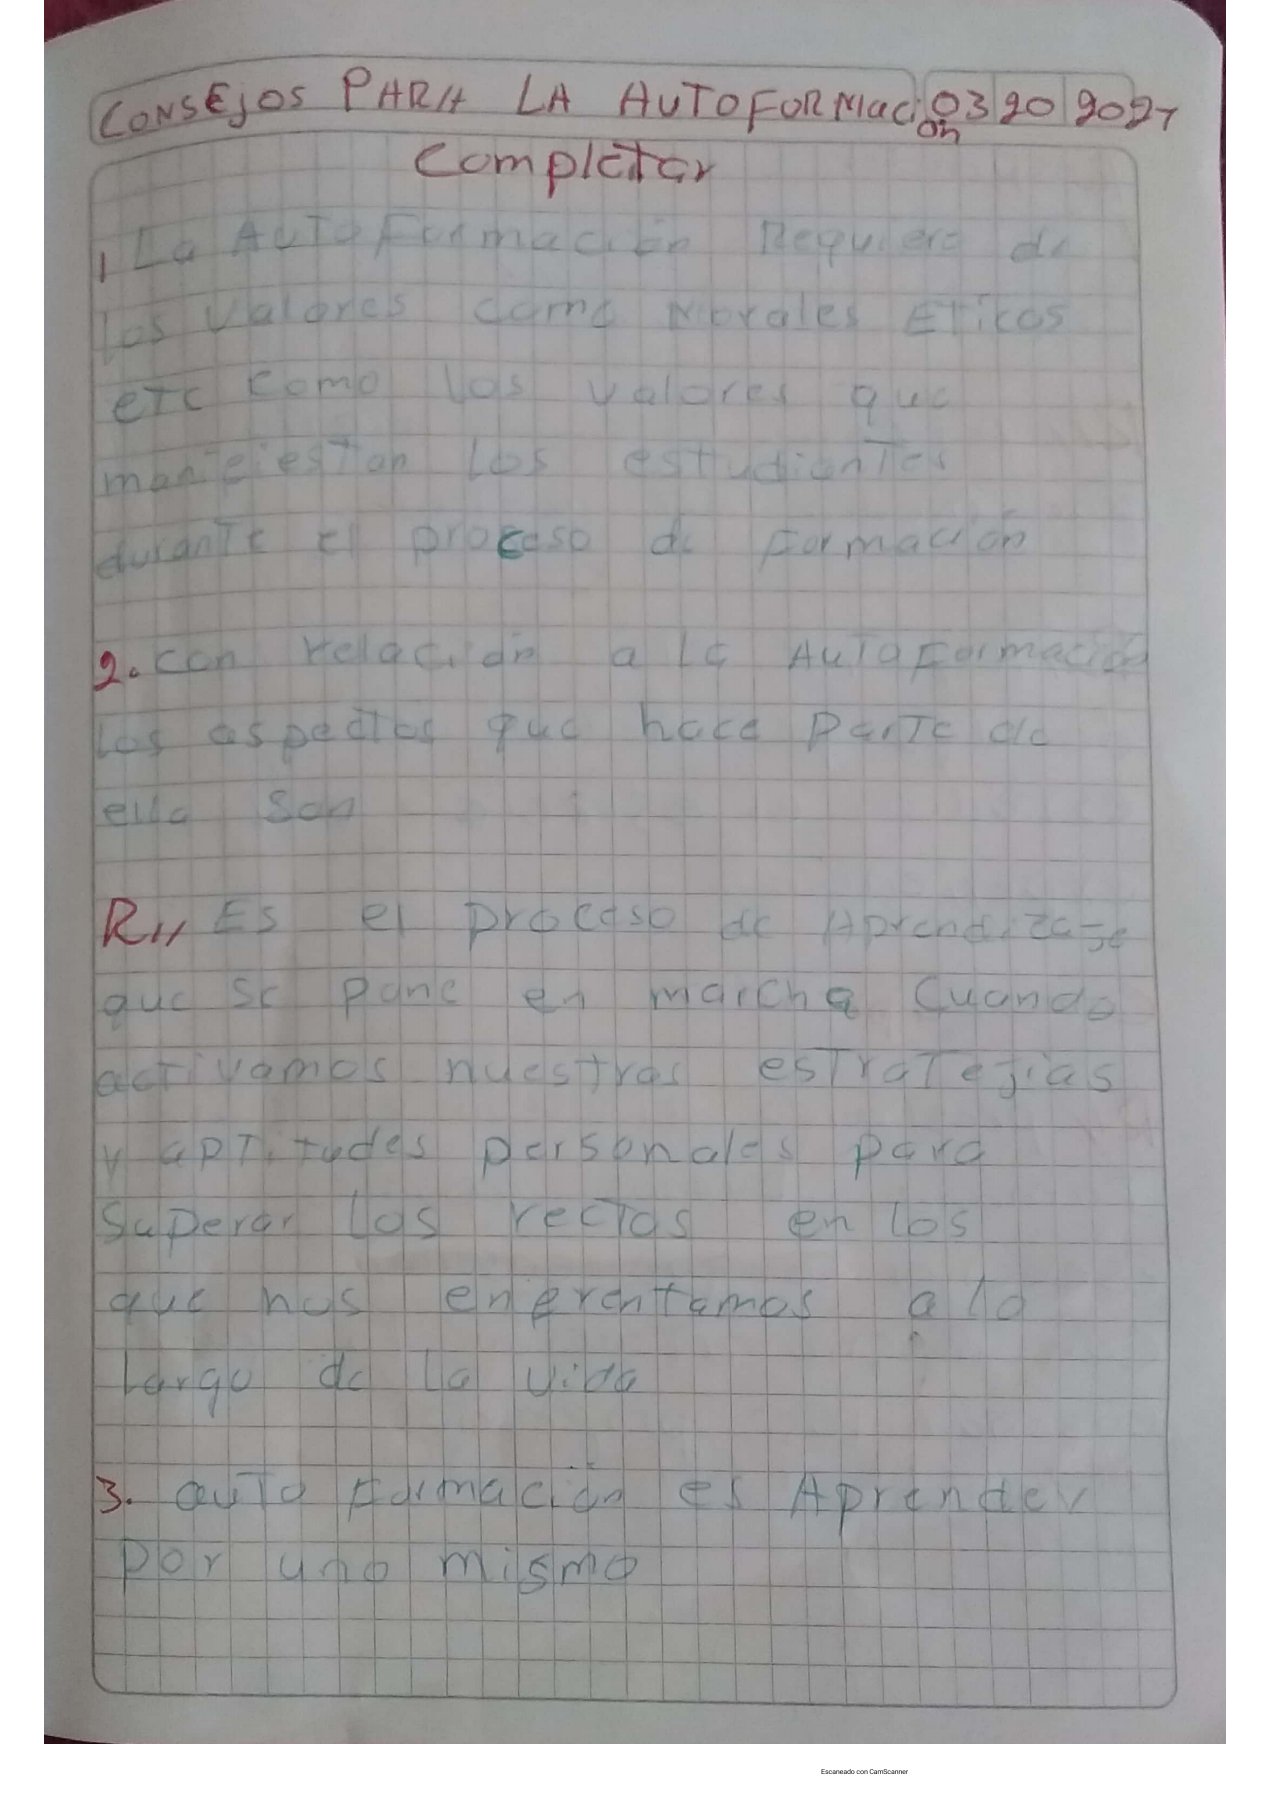 CONSEJOS PARA LA AUTOFORMACión 03 20 2021
Completar
1 La AUTOFormación Requiere de
los valores como Morales ETicos
eTc como los valores que
manifiestan los estudianTes
duranTe el proceso de Formación
2. con relación a la AuToFormación
los aspectos que hace ParTe de
ella Son
R// Es el proceso de Aprendizaje
que se pone en marcha Cuando
activamos nuestras esTraTejias
y apTitudes personales para
Superar los rectos en los
que nos enfrentamos a lo
largo de la vida
3. auto Formación es Aprender
por uno mismo
Escaneado con CamScanner